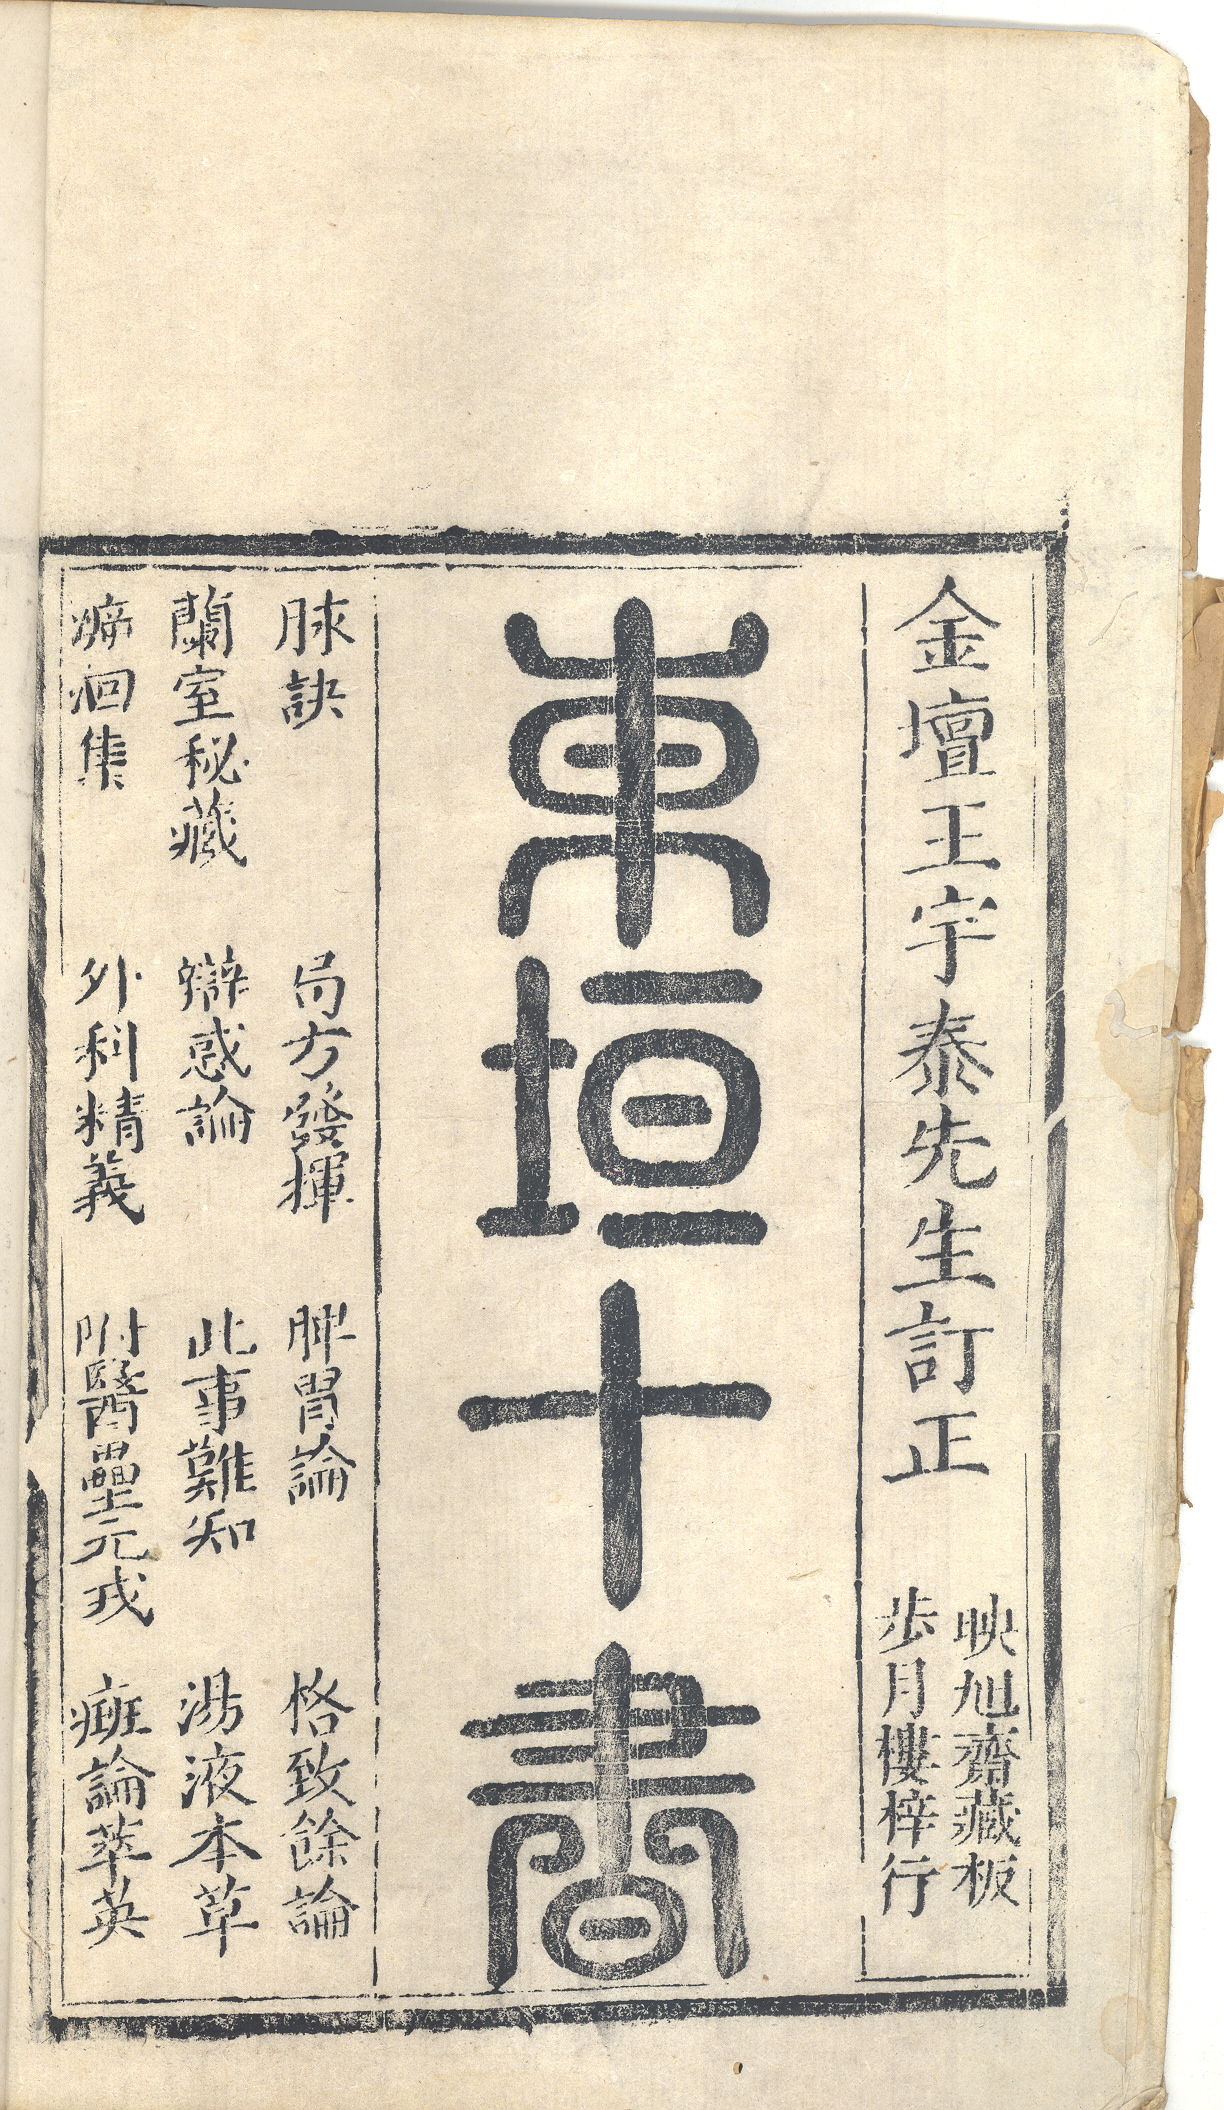 金壇王宇泰先生訂正
映旭齋藏板
步月樓梓行
東垣十書
脉訣 局方發揮 脾胃論 格致餘論
蘭室秘藏 辯惑論 此事難知 湯液本草
溯洄集 外科精義 附醫壘元戎 癍論萃英